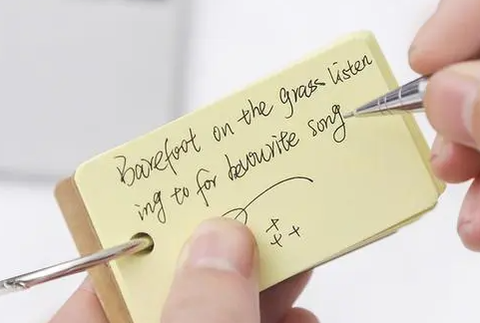 Barefoot on the grass listen
ing to for favourite song